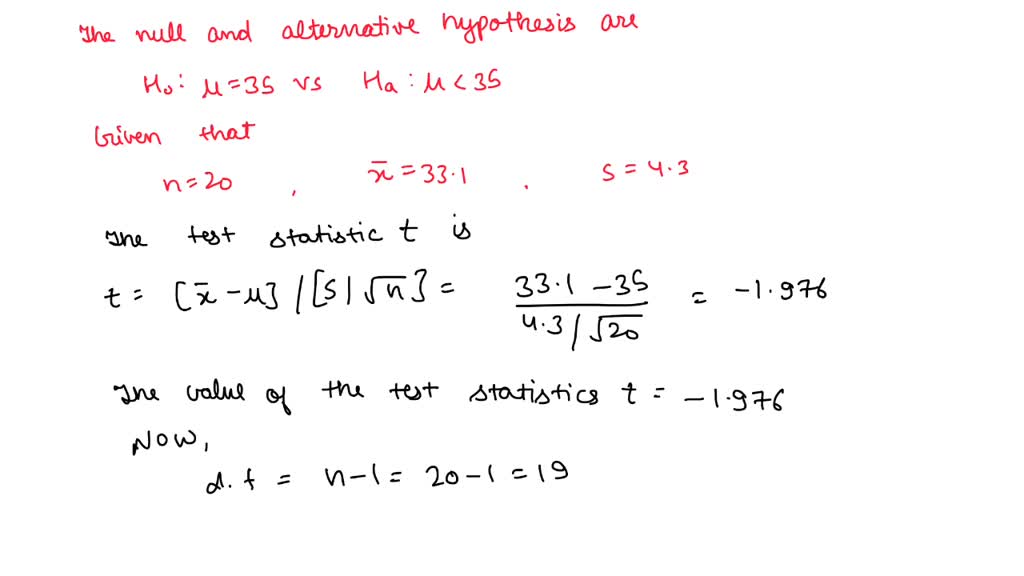 The null and alternative hypothesis are
H₀: μ=35 vs Ha: μ<35
Given that
n=20, x̄=33.1, s=4.3
The test statistic t is
t = [x̄-μ]/[S/√n] = (33.1-35)/(4.3/√20) = -1.976
The value of the test statistics t = -1.976
NOW,
d.f = n-1 = 20-1 = 19